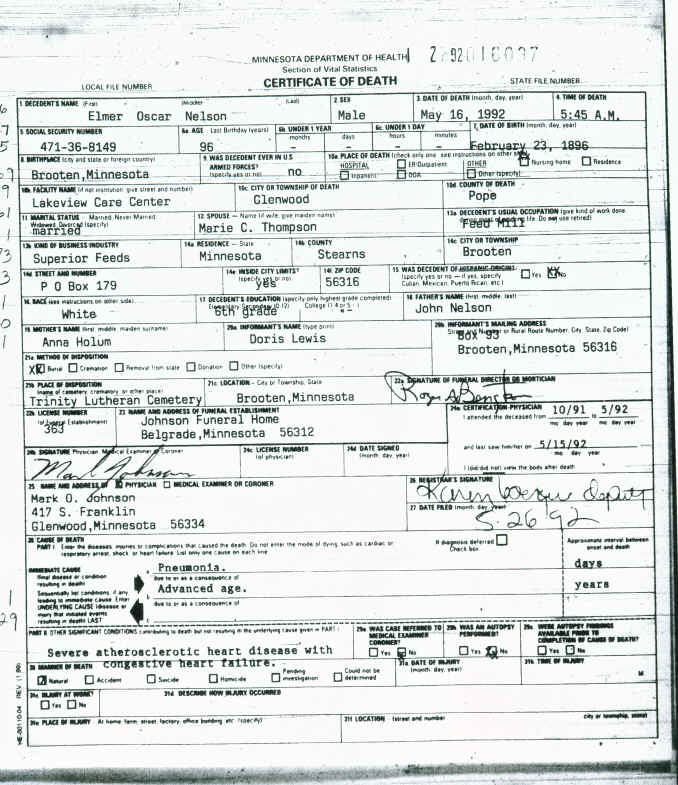 MINNESOTA DEPARTMENT OF HEALTH
Section of Vital Statistics
CERTIFICATE OF DEATH
LOCAL FILE NUMBER STATE FILE NUMBER
1 DECEDENT'S NAME (First) (Middle) (Last) 2 SEX 3 DATE OF DEATH (month, day, year) 4 TIME OF DEATH
Elmer Oscar Nelson Male May 16, 1992 5:45 A.M.
5 SOCIAL SECURITY NUMBER 6a AGE Last Birthday (years) 6b UNDER 1 YEAR 6c UNDER 1 DAY 7 DATE OF BIRTH (month, day, year)
months days hours minutes
471-36-8149 96 – – – – February 23, 1896
8 BIRTHPLACE (city and state or foreign country) 9 WAS DECEDENT EVER IN U.S. ARMED FORCES? (specify yes or no) 10a PLACE OF DEATH (check only one see instructions on other side)
HOSPITAL ER/Outpatient OTHER Nursing home Residence
Brooten, Minnesota no Inpatient DOA Other (specify)
10b FACILITY NAME (if not institution give street and number) 10c CITY OR TOWNSHIP OF DEATH 10d COUNTY OF DEATH
Lakeview Care Center Glenwood Pope
11 MARITAL STATUS - Married, Never Married, Widowed, Divorced (specify) 12 SPOUSE - Name (if wife, give maiden name) 13a DECEDENT'S USUAL OCCUPATION (give kind of work done
married Marie C. Thompson Feed Mill
13b KIND OF BUSINESS/INDUSTRY 14a RESIDENCE - State 14b COUNTY 14c CITY OR TOWNSHIP
Superior Feeds Minnesota Stearns Brooten
14d STREET AND NUMBER 14e INSIDE CITY LIMITS? (specify yes or no) 14f ZIP CODE 15 WAS DECEDENT OF HISPANIC ORIGIN? (specify yes or no - if yes, specify Cuban, Mexican, Puerto Rican, etc.) Yes No
P O Box 179 yes 56316
16 RACE (see instructions on other side) 17 DECEDENT'S EDUCATION (specify only highest grade completed) 18 FATHER'S NAME (first, middle, last)
Elementary/Secondary (0-12) College (1-4 or 5+)
White 6th grade John Nelson
19 MOTHER'S NAME (first, middle, maiden surname) 20a INFORMANT'S NAME (type print) 20b INFORMANT'S MAILING ADDRESS
Street and Number or Rural Route Number, City, State, Zip Code)
Anna Holum Doris Lewis Box 93
Brooten, Minnesota 56316
21a METHOD OF DISPOSITION
Burial Cremation Removal from state Donation Other (specify)
21b PLACE OF DISPOSITION (name of cemetery, crematory, or other place) 21c LOCATION - City or Township, State 22a SIGNATURE OF FUNERAL DIRECTOR OR MORTICIAN
Trinity Lutheran Cemetery Brooten, Minnesota
22b LICENSE NUMBER (of Funeral Establishment) 23 NAME AND ADDRESS OF FUNERAL ESTABLISHMENT 24a CERTIFICATION-PHYSICIAN
363 Johnson Funeral Home I attended the deceased from 10/91 to 5/92
mo day year mo day year
Belgrade, Minnesota 56312
and last saw him/her on 5/15/92
mo day year
I (did/did not) view the body after death
24b SIGNATURE Physician, Medical Examiner or Coroner 24c LICENSE NUMBER (of physician) 24d DATE SIGNED (month, day, year)
25 NAME AND ADDRESS OF PHYSICIAN MEDICAL EXAMINER OR CORONER 26 REGISTRAR'S SIGNATURE
Mark O. Johnson
417 S. Franklin 27 DATE FILED (month, day, year)
Glenwood, Minnesota 56334 5-26-92
28 CAUSE OF DEATH
PART I Enter the diseases, injuries or complications that caused the death. Do not enter the mode of dying, such as cardiac or respiratory arrest, shock, or heart failure. List only one cause on each line
If diagnosis deferred Check box
Approximate interval between onset and death
IMMEDIATE CAUSE (final disease or condition resulting in death) Pneumonia. days
due to or as a consequence of
Sequentially list conditions, if any, leading to immediate cause. Enter UNDERLYING CAUSE (disease or injury that initiated events resulting in death) LAST
Advanced age. years
due to or as a consequence of
PART II OTHER SIGNIFICANT CONDITIONS contributing to death but not resulting in the underlying cause given in PART I
Severe atherosclerotic heart disease with
congestive heart failure.
29a WAS CASE REFERRED TO MEDICAL EXAMINER CORONER? Yes No
29b WAS AN AUTOPSY PERFORMED? Yes No
29c WERE AUTOPSY FINDINGS AVAILABLE PRIOR TO COMPLETION OF CAUSE OF DEATH? Yes No
30 MANNER OF DEATH
Natural Accident Suicide Homicide Pending investigation Could not be determined
31a DATE OF INJURY (month, day, year) 31b TIME OF INJURY M
31c INJURY AT WORK? Yes No 31d DESCRIBE HOW INJURY OCCURRED
31e PLACE OF INJURY At home, farm, street, factory, office building, etc. (specify) 31f LOCATION - (street and number city or township, state)
HE-00110-04 REV.